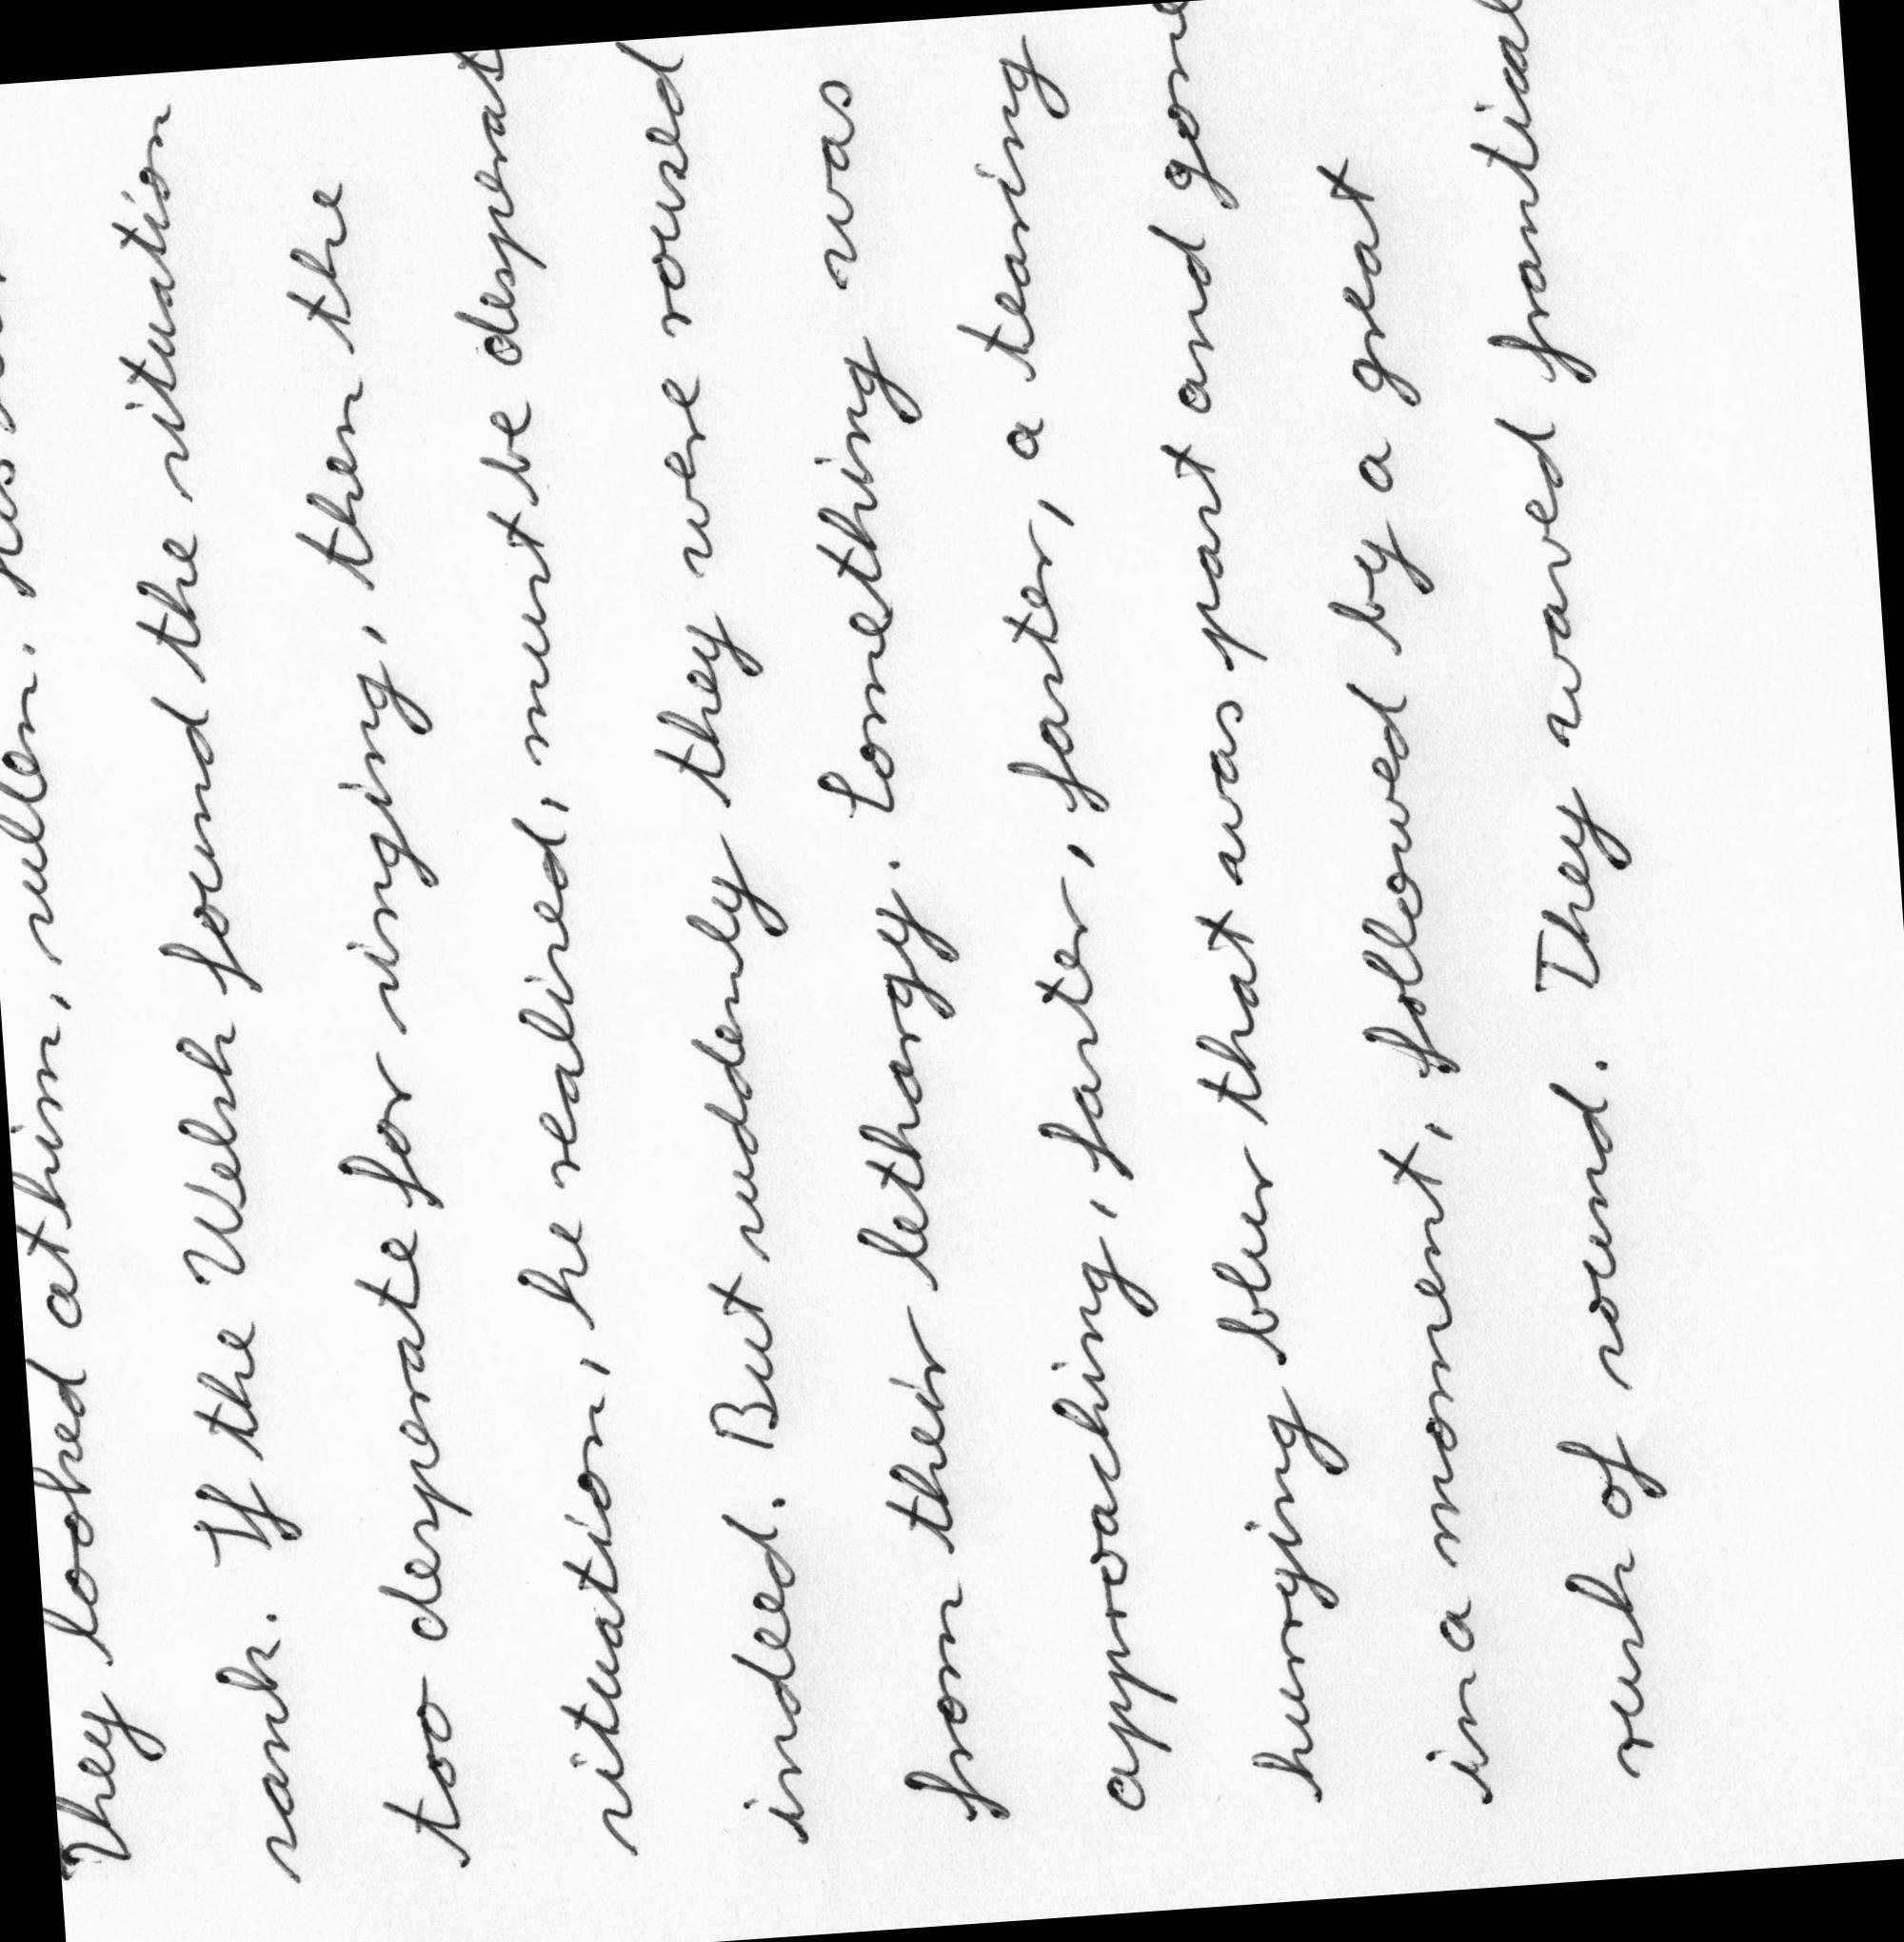 They looked at him, sullen. His heart
sank. If the Welsh found the situation
too desperate for singing, then the
situation, he realised, must be desperate
indeed. But suddenly they were roused
from their lethargy. Something was
approaching, faster, faster, faster, a tearing
hurrying blur that was past and gone
in a moment, followed by a great
rush of sound. They waved frantically